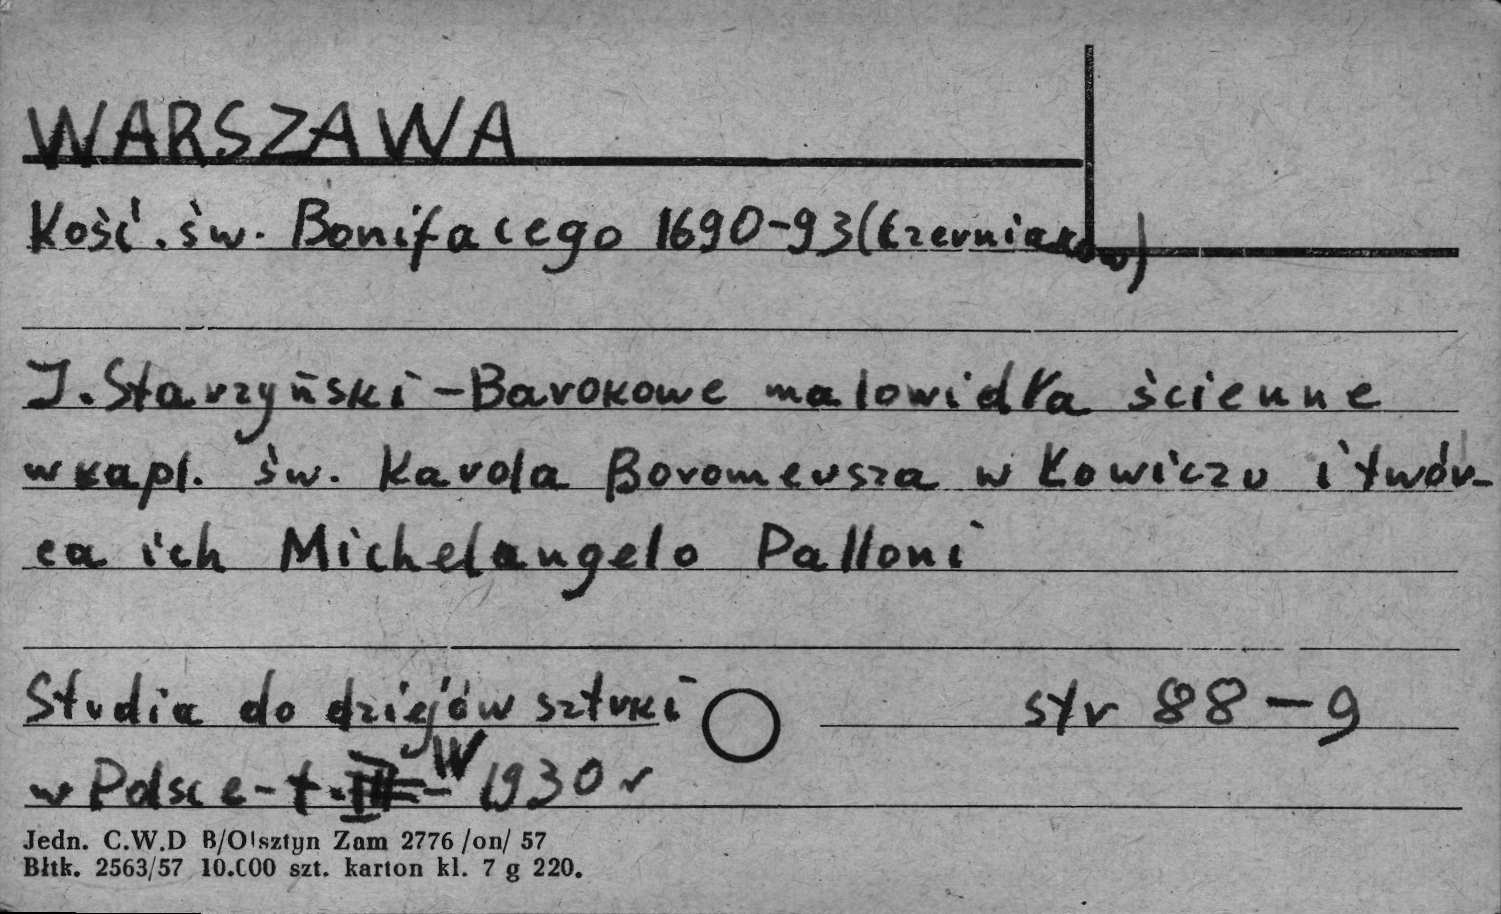 WARSZAWA
Kość. św. Bonifacego 1690-93 (Czerniaków)
J. Starzyński - Barokowe malowidła ścienne
w kapl. św. Karola Boromeusza w Łowiczu i twór-
ca ich Michelangelo Palloni
Studia do dziejów sztuki str 88-9
w Polsce - t. W 1930 r
Jedn. C.W.D B/Olsztyn Zam 2776 /on/ 57
Błtk. 2563/57 10.000 szt. karton kl. 7 g 220.